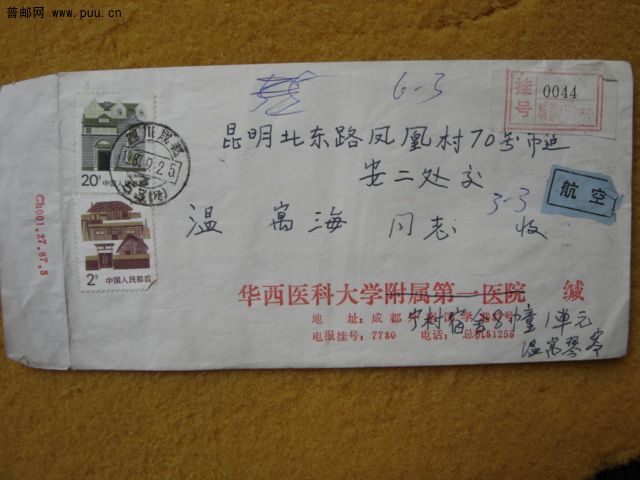 普邮网 www.puu.cn
挂号
0044
6-3
昆明北东路凤凰村70号市
安二处交
3-3
航空
温寓海同志收
20分 中国人民邮政
2分
中国人民邮政
1987.9.25
Ch001.27.87.5
华西医科大学附属第一医院 缄
地 址:成都
宁村宿舍8幢1单元
电报挂号:7780 电话:总机51255
温寓琴寄